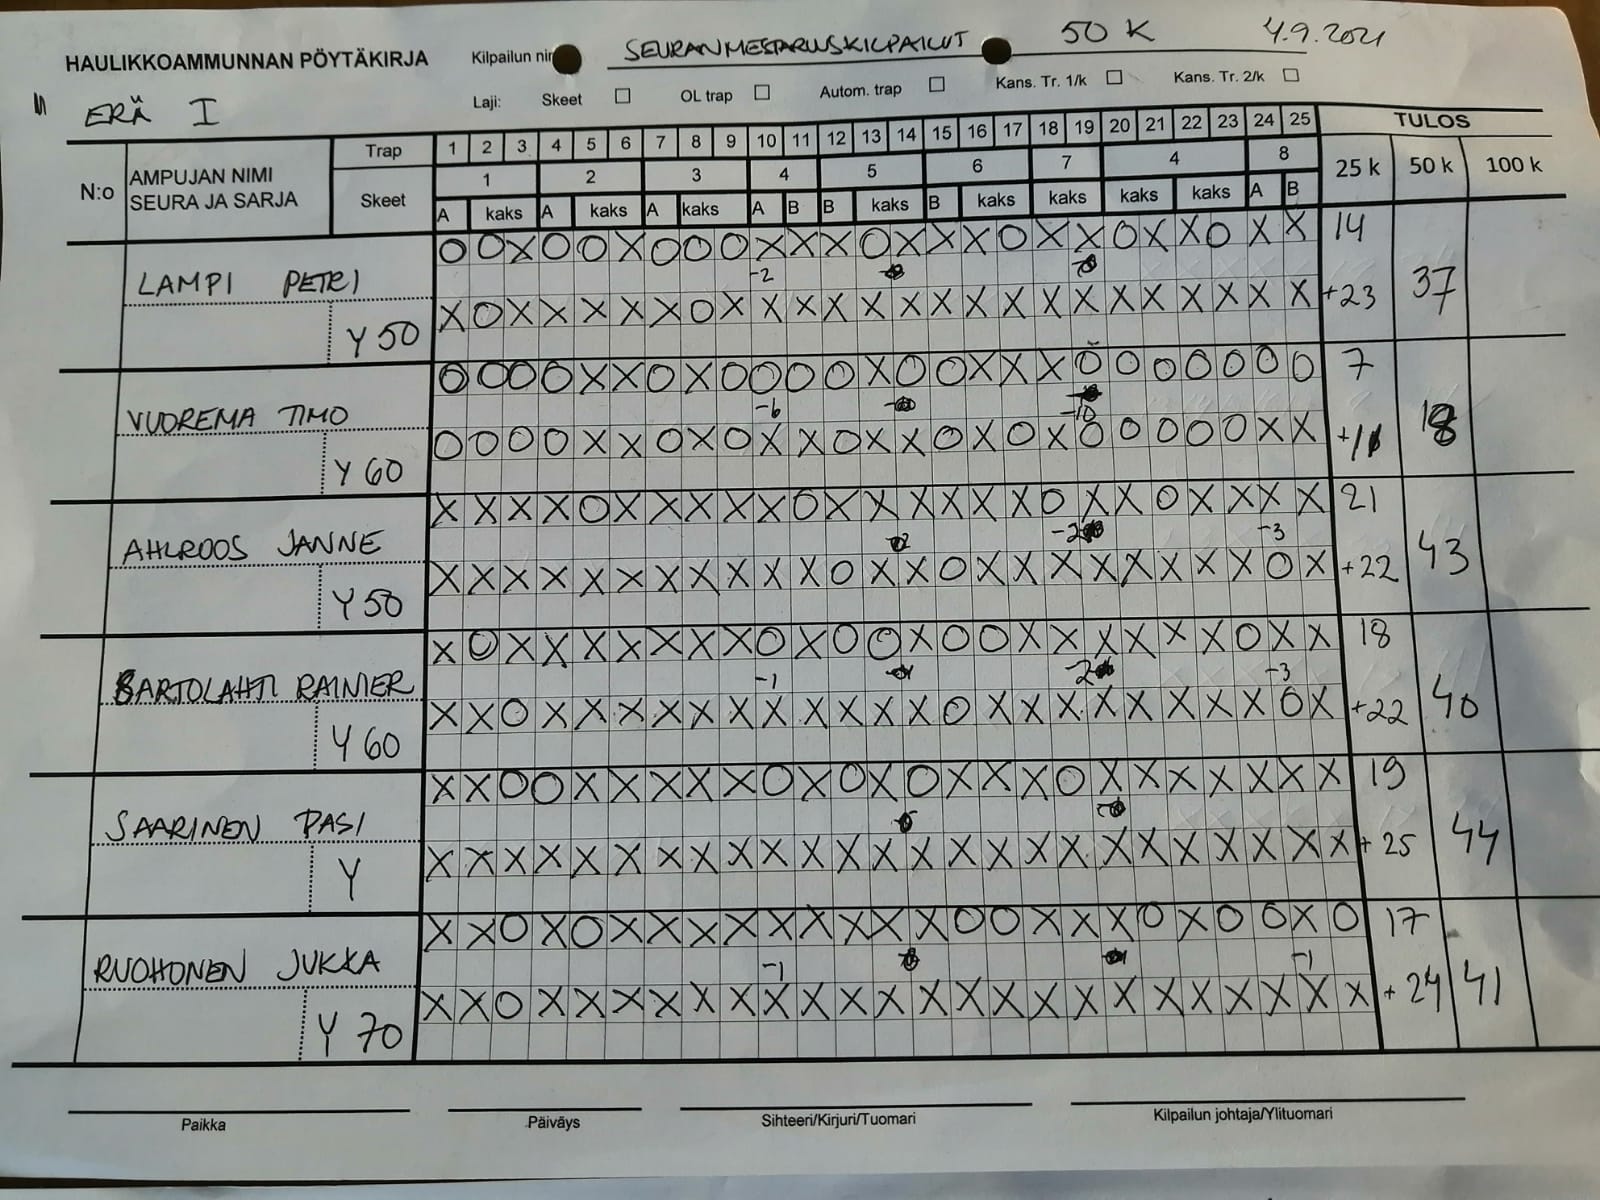 HAULIKKOAMMUNNAN PÖYTÄKIRJA Kilpailun nim SEURANMESTARUUSKILPAILUT 50 K 4.9.2021
Laji: Skeet OL trap Autom. trap Kans. Tr. 1/k Kans. Tr. 2/k
ERÄ I
N:o AMPUJAN NIMI SEURA JA SARJA Trap 1 2 3 4 5 6 7 8 9 10 11 12 13 14 15 16 17 18 19 20 21 22 23 24 25 TULOS
Skeet 1 2 3 4 5 6 7 4 8 25 k 50 k 100 k
A kaks A kaks A kaks A B B kaks B kaks kaks kaks kaks A B
O O X O O X O O O X X X O X X X O X X O X X O X X 14
LAMPI PETRI -2
X O X X X X X O X X X X X X X X X X X X X X X X X +23 37
Y 50
O O O O X X O X O O O O X O O X X X O O O O O O O 7
VUOREMA TIMO -6 -10
O O O O X X O X O X X O X X O X O X O O O O O X X +11 18
Y 60
X X X X O X X X X X O X X X X X X O X X O X X X X 21
AHLROOS JANNE -2 -3
X X X X X X X X X X X O X X O X X X X X X X X O X +22 43
Y 50
X O X X X X X X X O X O O X O O X X X X X X O X X 18
BARTOLAHTI RAINIER -1 -2 -3
X X O X X X X X X X X X X X O X X X X X X X X O X +22 40
Y 60
X X O O X X X X X O X O X O X X X O X X X X X X X 19
SAARINEN PASI
X X X X X X X X X X X X X X X X X X X X X X X X X + 25 44
Y
X X O X O X X X X X X X X X O O X X X O X O O X O 17
RUOHONEN JUKKA -1 -1
X X O X X X X X X X X X X X X X X X X X X X X X X + 24 41
Y 70
Paikka Päiväys Sihteeri/Kirjuri/Tuomari Kilpailun johtaja/Ylituomari